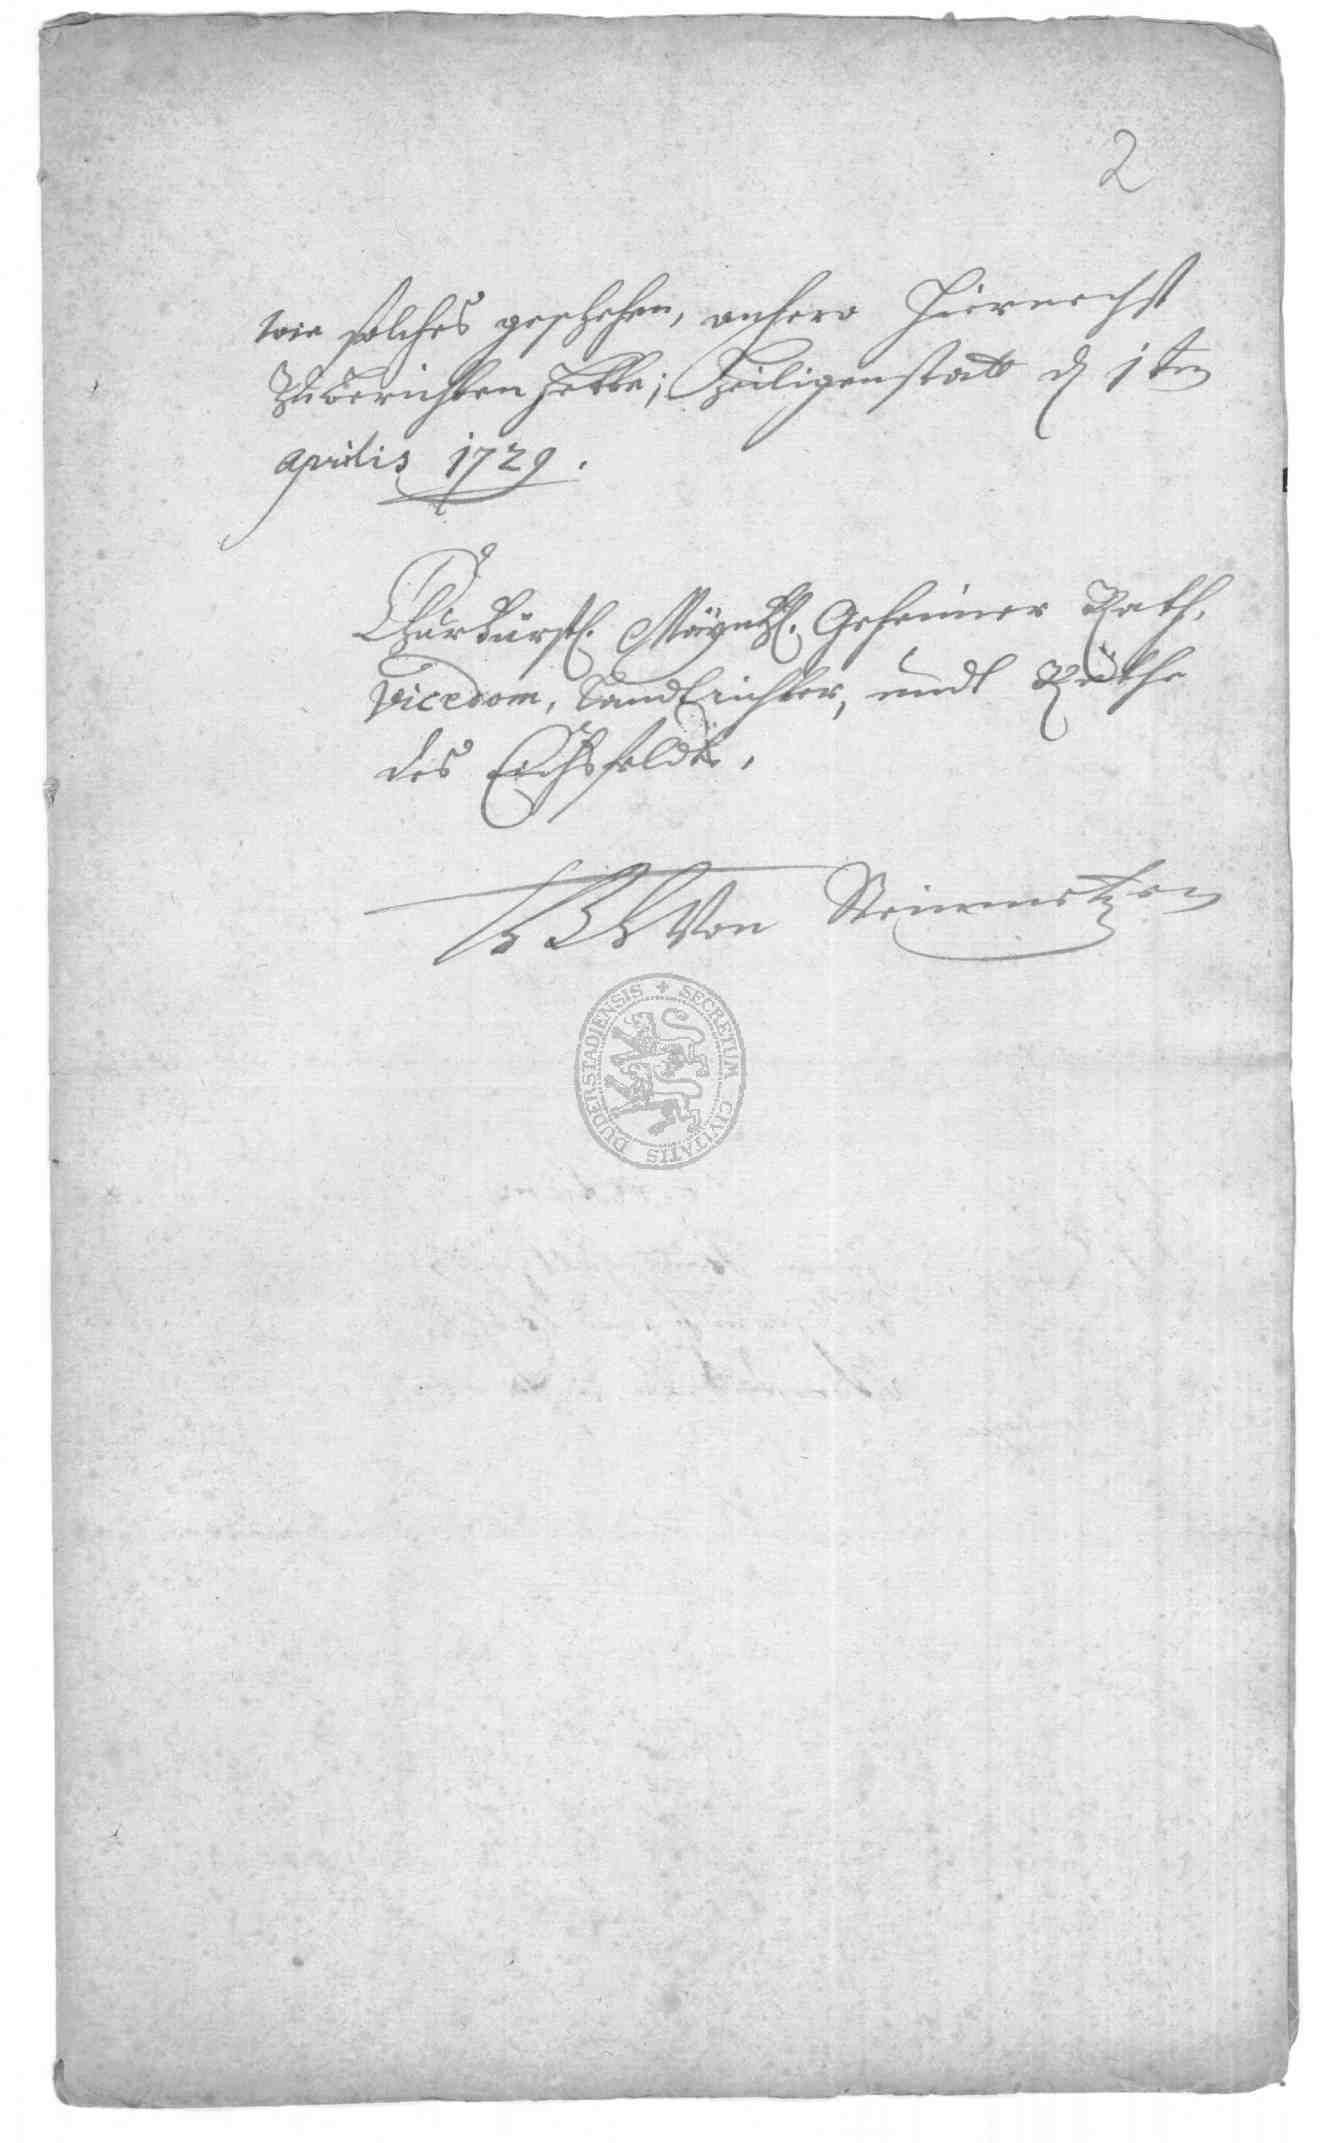 2
wie solches geschehen, anhero hiernechst
Zu berichten hette; Heiligenstatt d 1ten
Aprilis 1729.
Churfürstl. Mäyntzl. Geheimer Rath,
Vicedom, Landrichter, undt Räthe
des Eichsfeldts,
von Steinmetzen
SECRETUM CIVITATIS DUDERSTADIENSIS